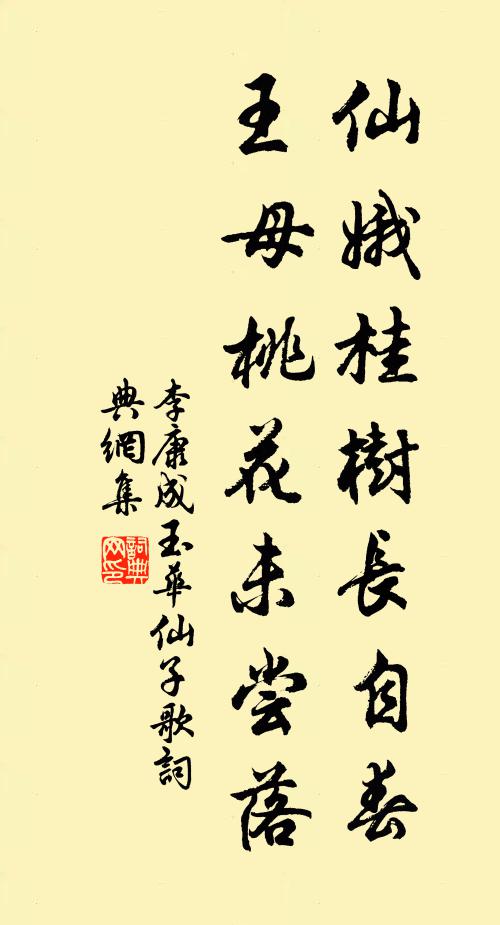 仙娥桂樹長自春
王母桃花未嘗落
李康成玉華仙子歌詞
典網集
詞典
网印